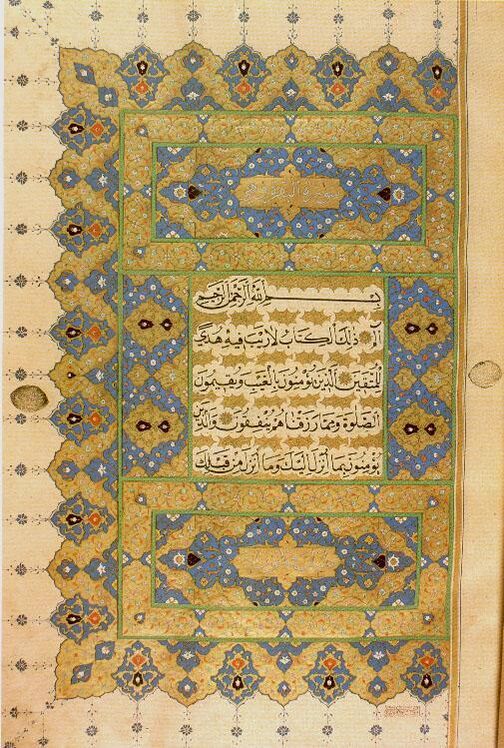 سورة البقرة
بِسْمِ اللَّهِ الرَّحْمٰنِ الرَّحِيمِ
الٓمٓ ذٰلِكَ الْكِتَابُ لَا رَيْبَ فِيهِ هُدًى
لِلْمُتَّقِينَ الَّذِينَ يُؤْمِنُونَ بِالْغَيْبِ وَيُقِيمُونَ
الصَّلٰوةَ وَمِمَّا رَزَقْنَاهُمْ يُنْفِقُونَ وَالَّذِينَ
يُؤْمِنُونَ بِمَا أُنْزِلَ إِلَيْكَ وَمَا أُنْزِلَ مِنْ قَبْلِكَ